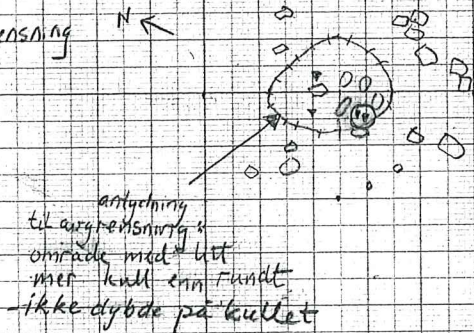 ensning
N
antydning
til avgrensning:
område med litt
mer kull enn rundt
-ikke dybde på kullet